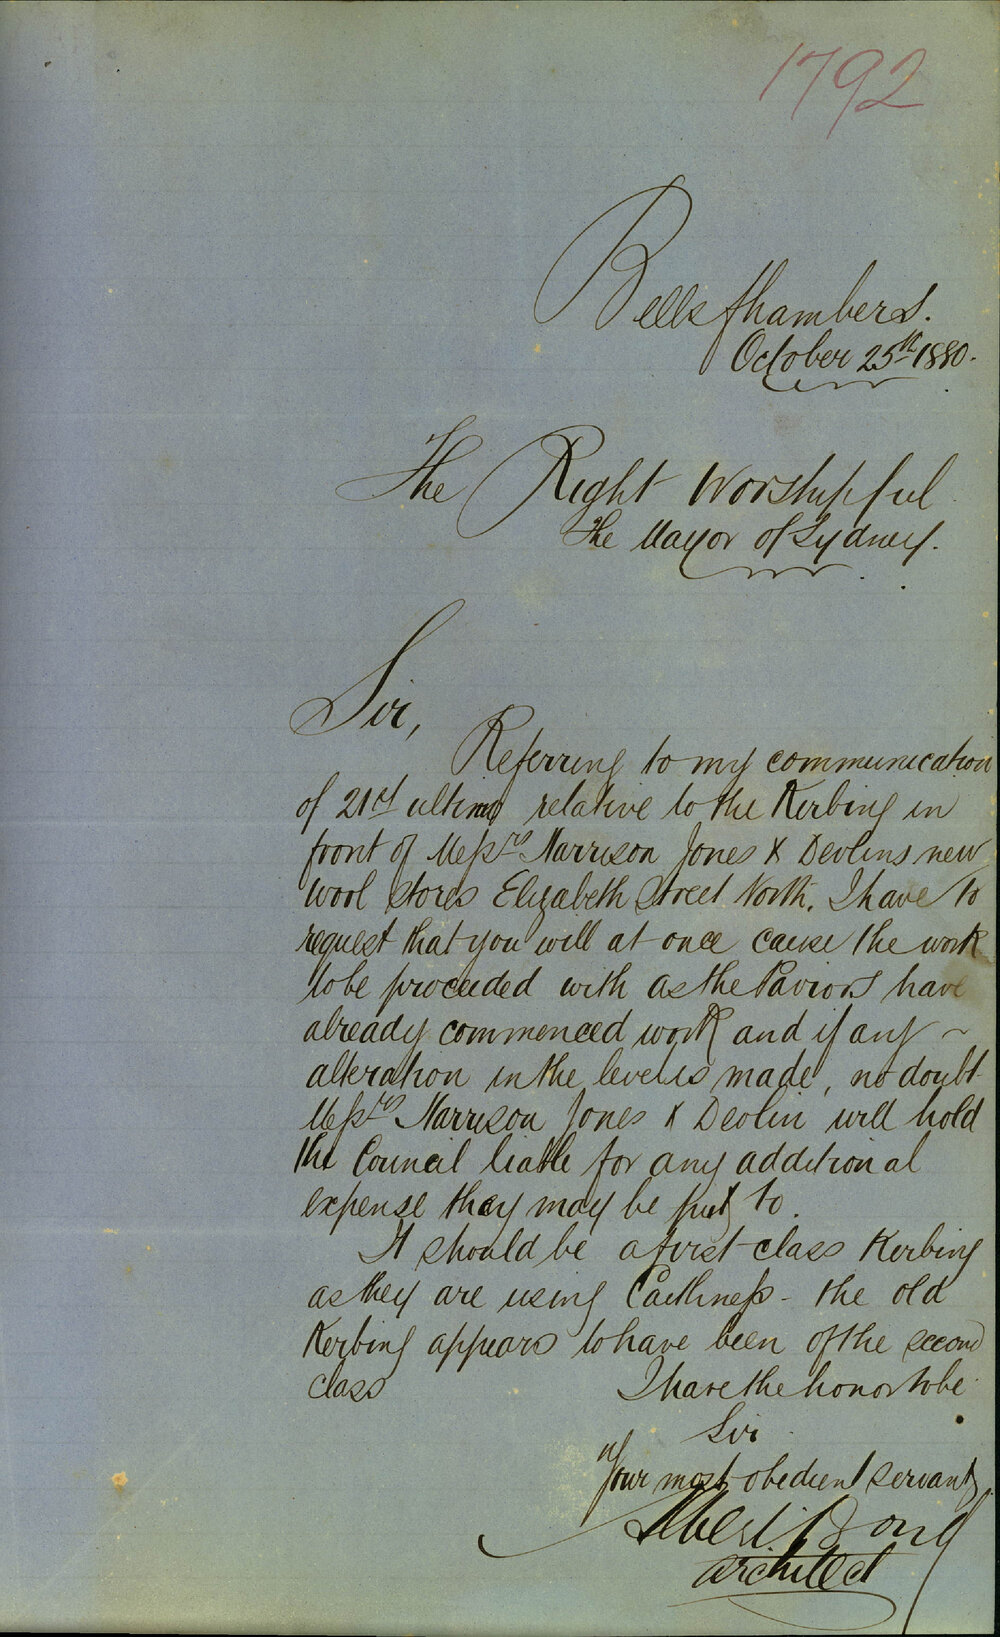 1792
Bells Chambers.
October 25th 1880.
The Right Worshipful
the Mayor of Sydney.
Sir,
Referring to my communication
of 21st ultimo relative to the Kerbing in
front of Messrs Harrison Jones & Devlins new
wool stores Elizabeth Street North, I have to
request that you will at once cause the work
to be proceeded with as the Paviors have
already commenced work and if any ~
alteration in the levels is made, no doubt
Messrs Harrison Jones & Devlin will hold
the Council liable for any additional
expense they may be put to.
It should be a first class Kerbing
as they are using Caithness - the old
Kerbing appears to have been of the second
class I have the honor to be
Sir
Your most obedient servant
Albert Bond
Architect